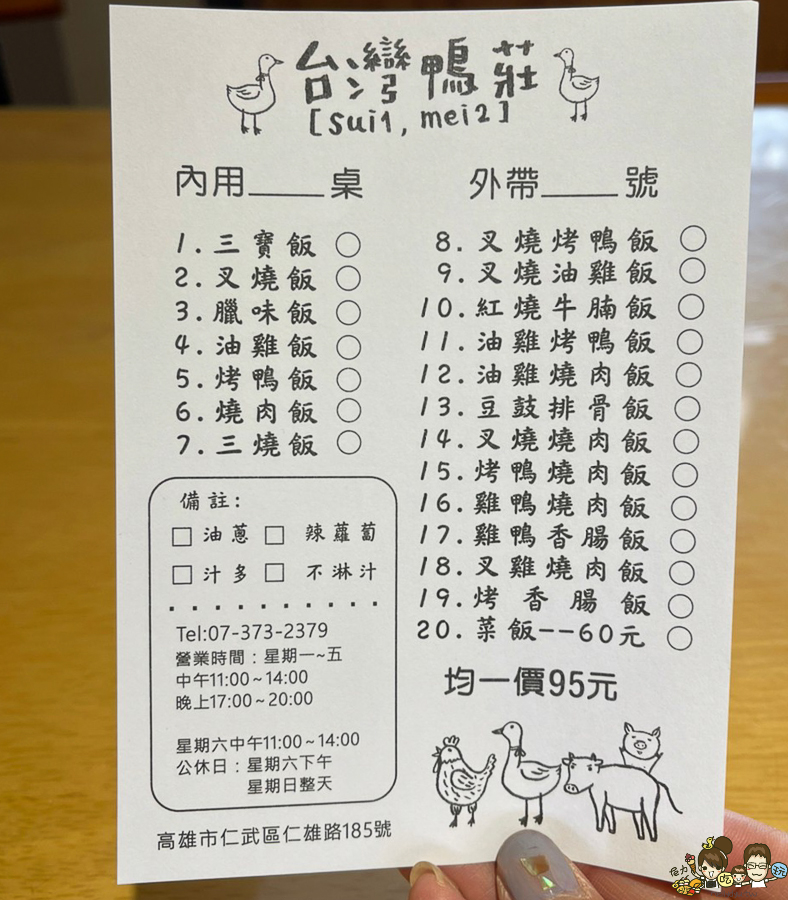 台灣鴨莊
[sui1, mei2]
內用____桌
外帶____號
1.三寶飯
2.叉燒飯
3.臘味飯
4.油雞飯
5.烤鴨飯
6.燒肉飯
7.三燒飯
8.叉燒烤鴨飯
9.叉燒油雞飯
10.紅燒牛腩飯
11.油雞烤鴨飯
12.油雞燒肉飯
13.豆鼓排骨飯
14.叉燒燒肉飯
15.烤鴨燒肉飯
16.雞鴨燒肉飯
17.雞鴨香腸飯
18.叉雞燒肉飯
19.烤香腸飯
20.菜飯--60元
均一價95元
備註:
油蔥 辣蘿蔔
汁多 不淋汁
Tel:07-373-2379
營業時間：星期一~五
中午11:00~14:00
晚上17:00~20:00
星期六中午11:00~14:00
公休日：星期六下午
星期日整天
高雄市仁武區仁雄路185號